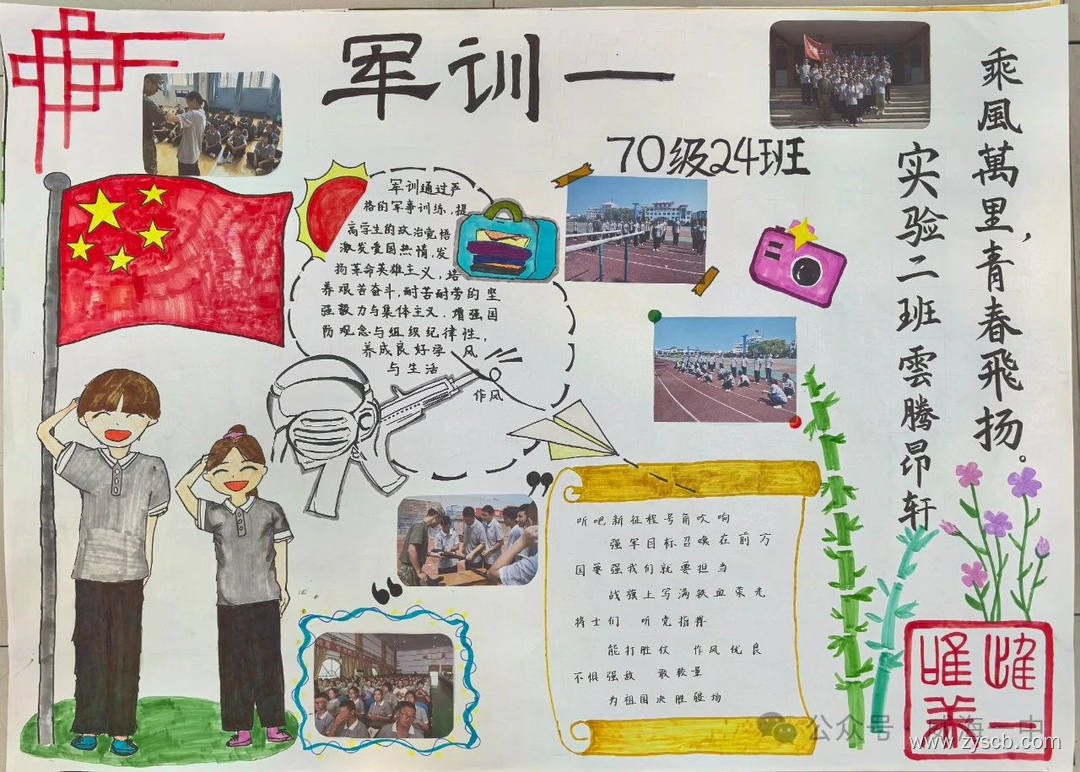 军训一
70级24班
乘風萬里,青春飛扬。
实验二班雲腾昂轩
军训通过严
格的军事训练,提
高学生的政治觉悟
激发爱国热情,发
扬革命英雄主义,培
养艰苦奋斗,耐苦耐劳的坚
强毅力与集体主义.增强国
防观念与组织纪律性,
养成良好学 风
与生活
作风
听吧新征程号角吹响
强军目标召唤在前方
国要强我们就要担当
战旗上写满铁血荣光
将士们 听党指挥
能打胜仗 作风优良
不惧强敌 敢较量
为祖国决胜疆场
公众号
www.zyscb.com